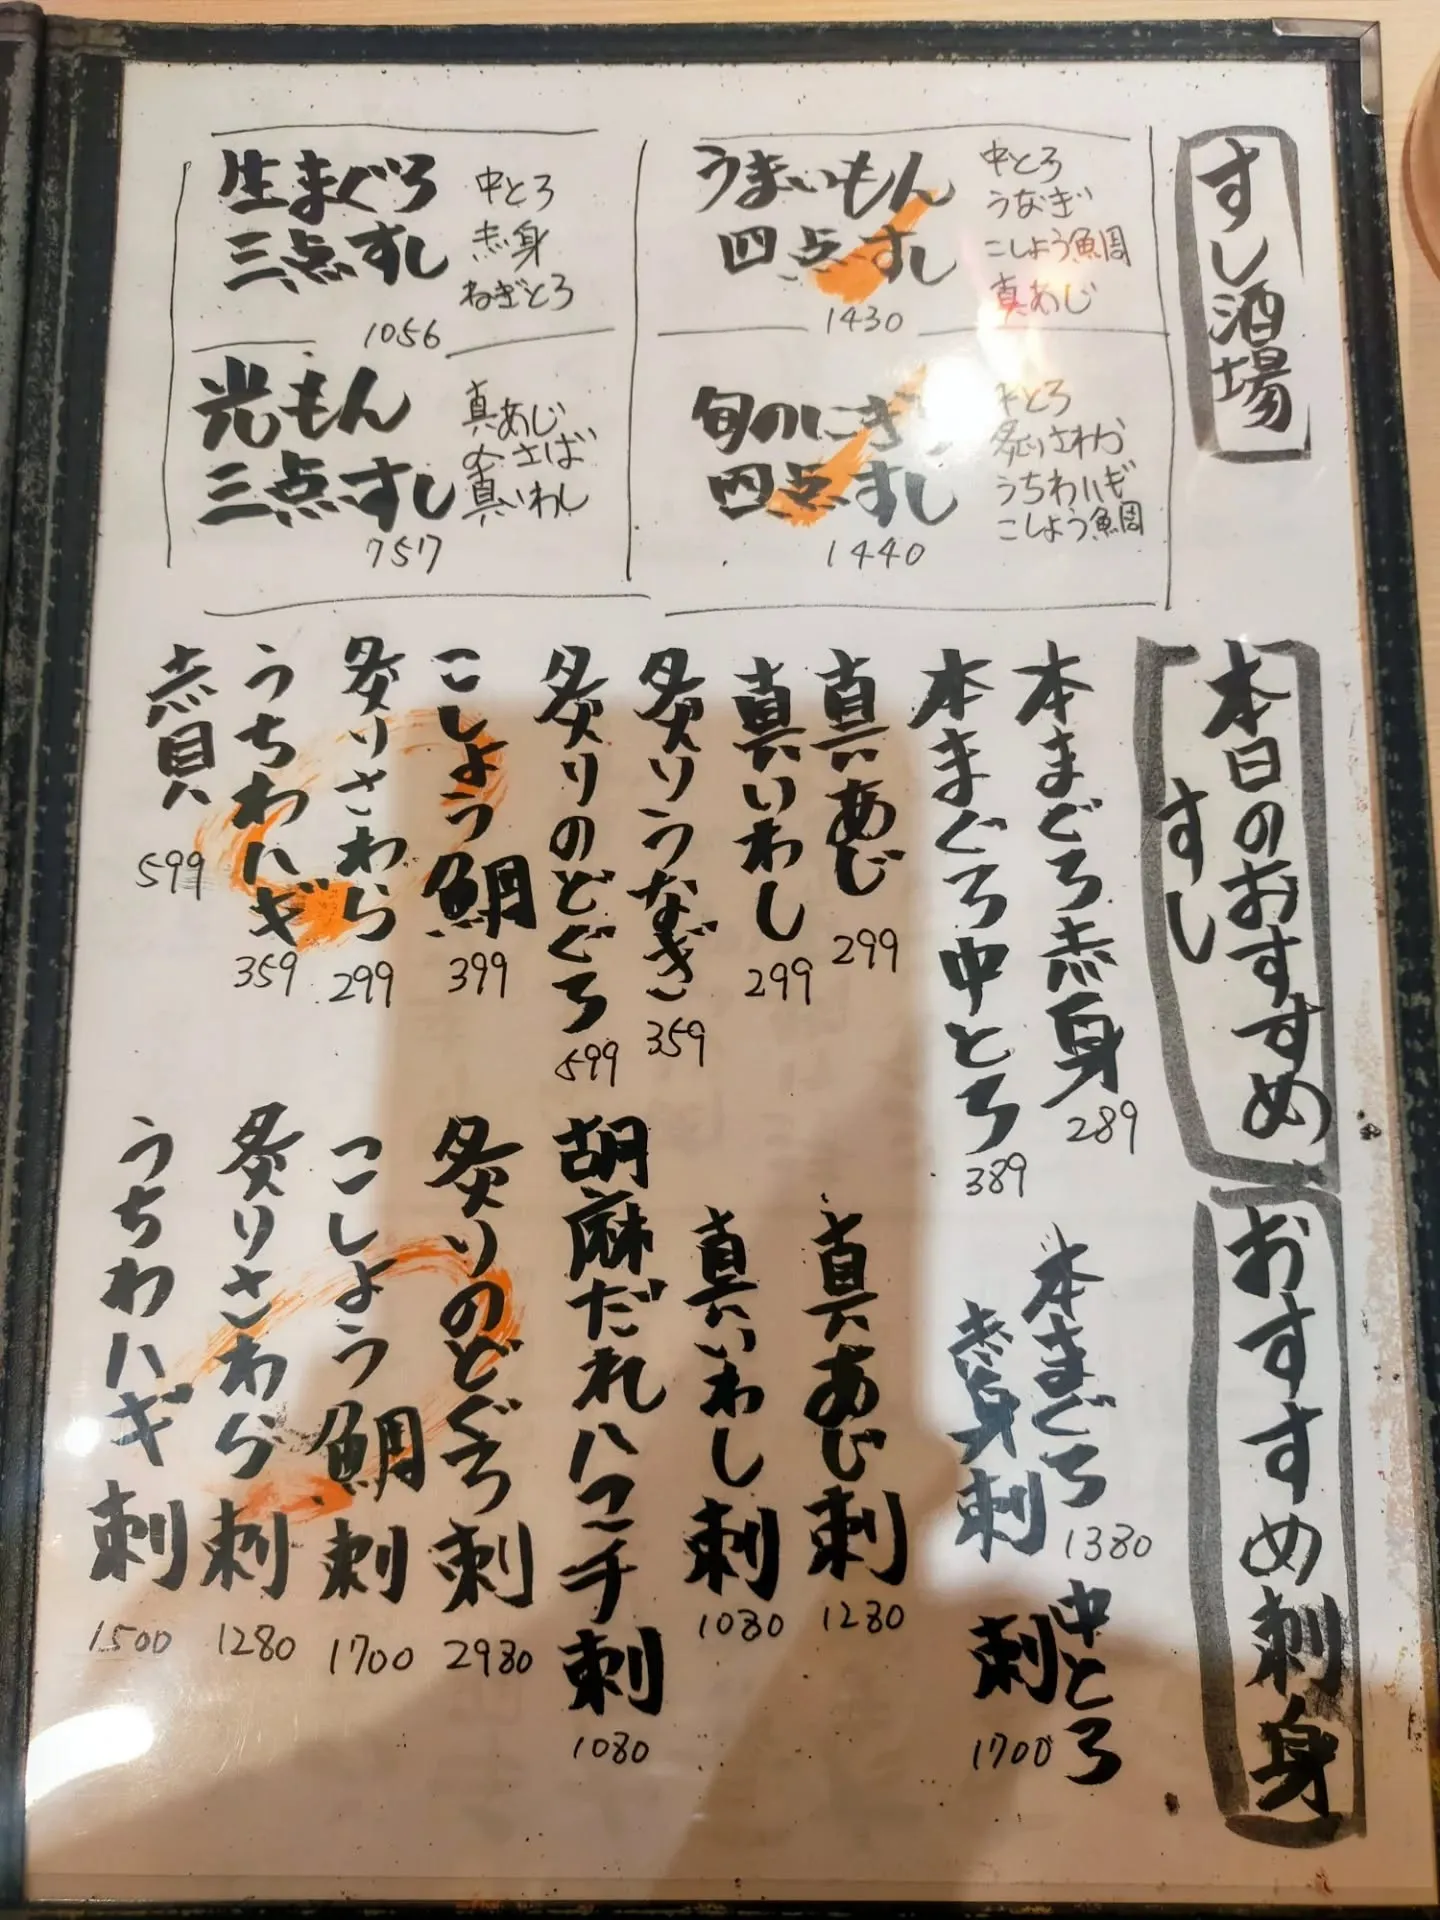 すし酒場
うまいもん
四点すし
1430
中とろ
うなぎ
こしょう鯛
真あじ
生まぐろ
三点すし
1056
中とろ
赤身
ねぎとろ
旬のにぎり
四点すし
1440
中とろ
炙りさわら
うちわハギ
こしょう鯛
光もん
三点すし
757
真あじ
〆さば
真いわし
本日のおすすめ
すし
本まぐろ赤身
289
本まぐろ中とろ
389
真あじ
299
真いわし
299
炙りうなぎ
359
炙りのどぐろ
599
こしょう鯛
399
炙りさわら
299
うちわハギ
359
赤貝
599
おすすめ刺身
本まぐろ
赤身刺
1380
中とろ
刺
1700
真あじ刺
1280
真いわし刺
1080
胡麻だれハマチ刺
1080
炙りのどぐろ刺
2980
こしょう鯛刺
1700
炙りさわら刺
1280
うちわハギ刺
1500